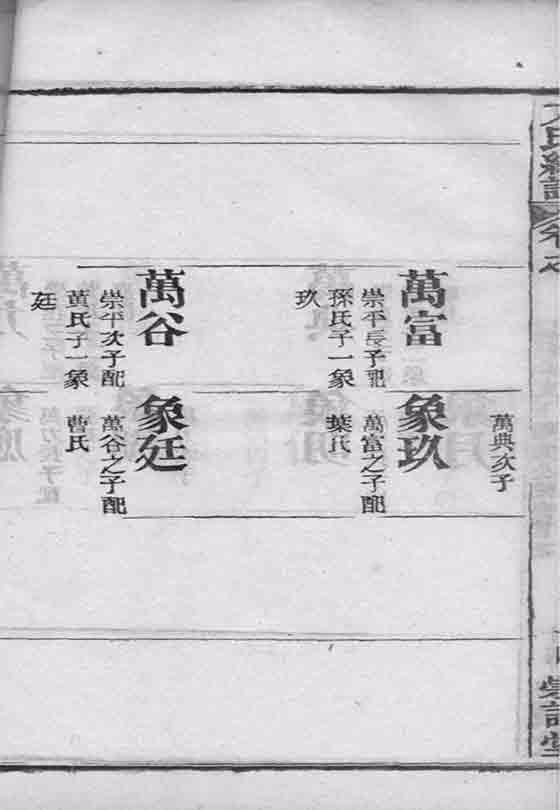 萬典次子
萬富
崇平長子配
孫氏子一象
玖
象玖
萬富之子配
葉氏
萬谷
崇平次子配
黄氏子一象
廷
象廷
萬谷之子配
曹氏